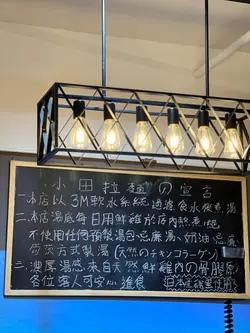 小田拉麵の宣言
一.本店以3M軟水系統過濾食水煲湯
二.本店湯底每日用鮮雞於店內熬
不使任何預製湯包忌廉、奶油忌廉
方式製湯(天然のチキンコラーゲン)
三.濃厚湯感來自天然鮮雞內骨膠原
各位客人可安心進食